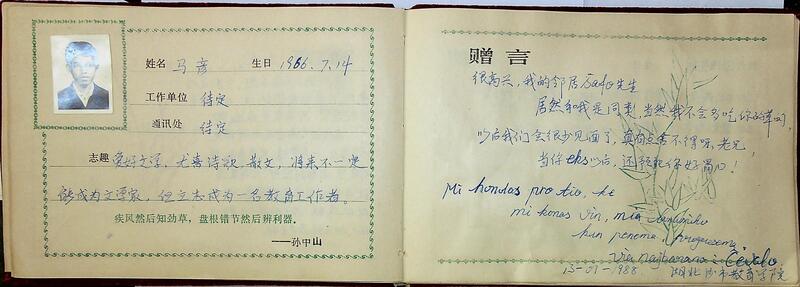 姓名 马彦 生日 1966.7.14
工作单位 待定
通讯处 待定
志趣 爱好文学，尤喜诗歌、散文，将来不一定
能成为文学家，但立志成为一名教育工作者。
疾风然后知劲草，盘根错节然后辨利器。
——孙中山
赠言
很高兴，我的邻居 先生
居然和我是同类，当然我不会多吃你的草的，
以后我们会很少见面了，真有点舍不得呀，老兄，
当作eks以后，还预祝你好胃口！
Mi honoras pro tio, ke
mi konas vin, mia
kun penema,
via najbarano: Ĉevalo
15-01-1988 湖北 市教育学院